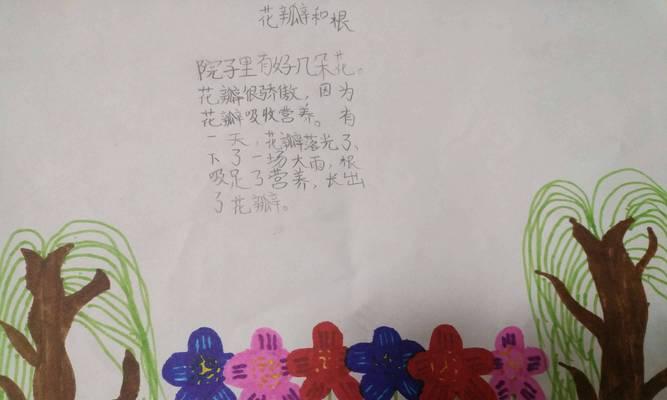 花瓣和根
院子里有好几朵花。
花瓣很骄傲，因为
花瓣吸收营养。有
一天，花瓣落光了、
下了一场大雨，根
吸足了营养，长出
了花瓣。